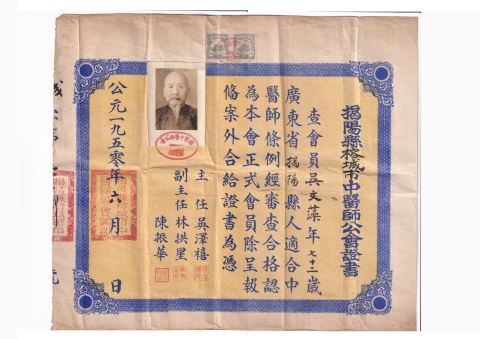 揭陽縣榕城市中醫師公會證書
查會員吳文藻年七十二歲
廣東省揭陽縣人適合中
醫師條例經審查合格認
為本會正式會員除呈報
偹案外合給證書為憑
主任 吳澤禧
副主任 林拱星
陳振華
公元一九五零年六月 日